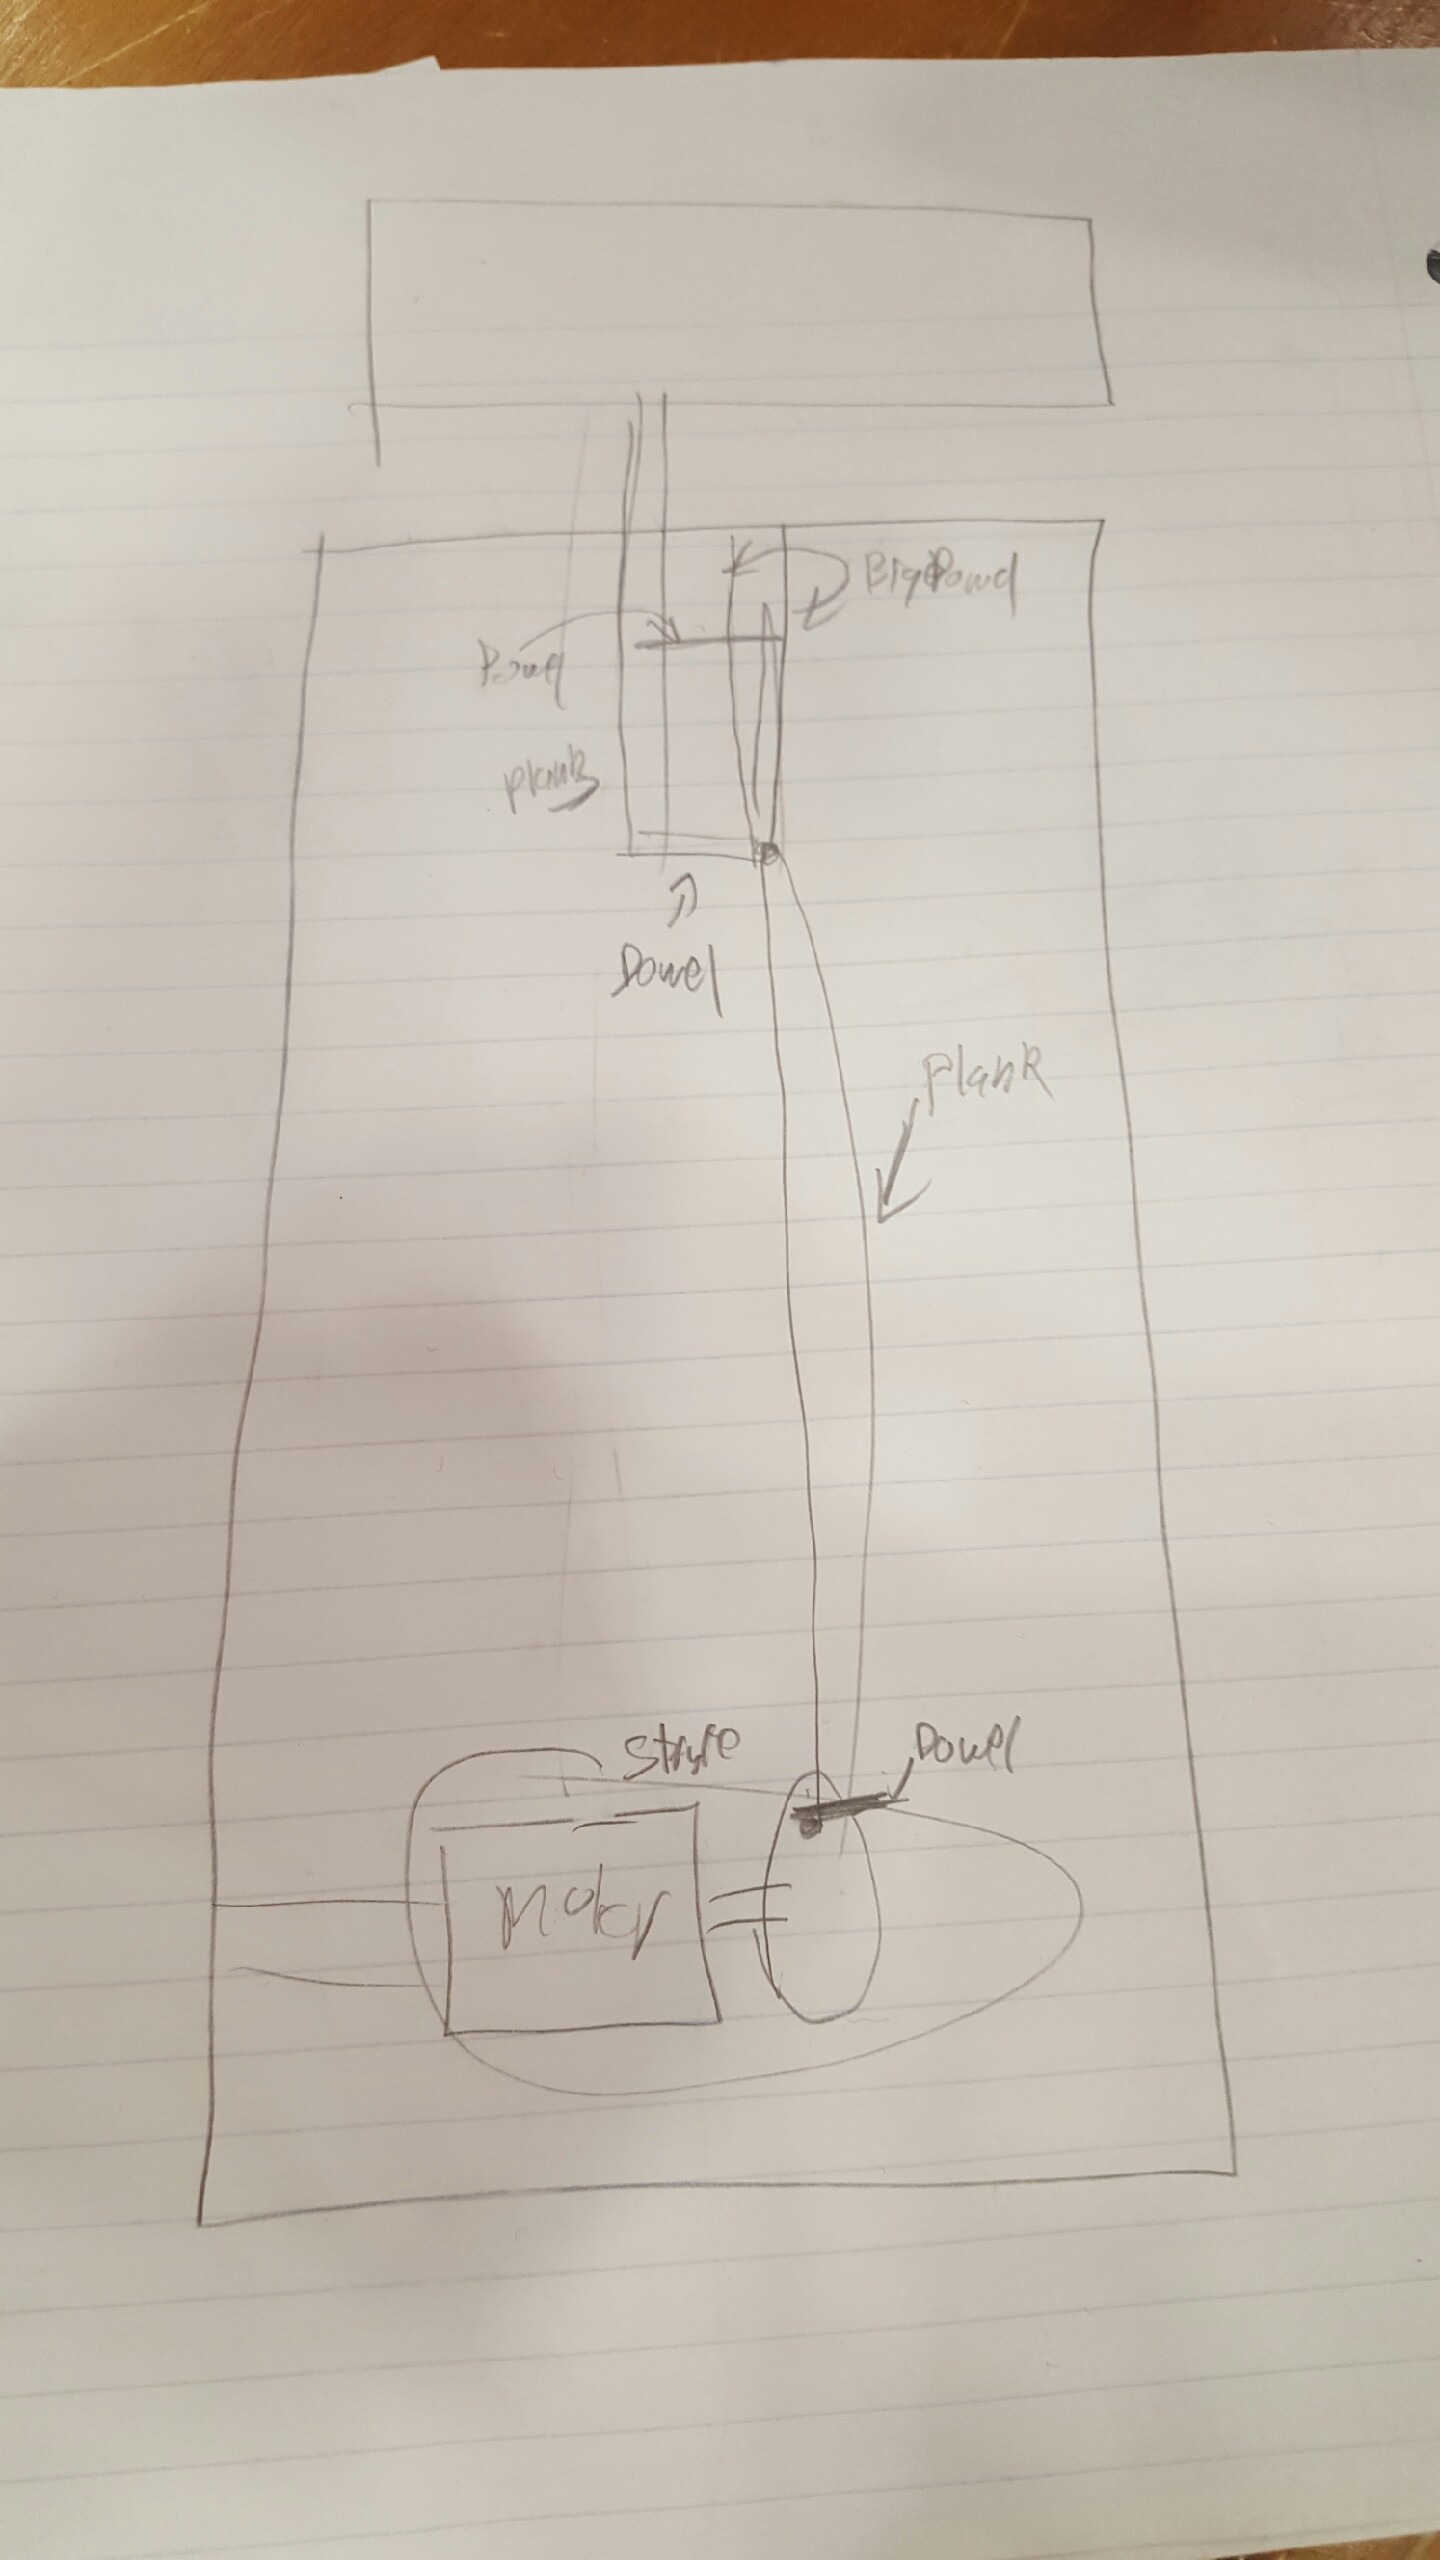 Big Dowel
Dowel
Plank
Dowel
Plank
Dowel
Motor